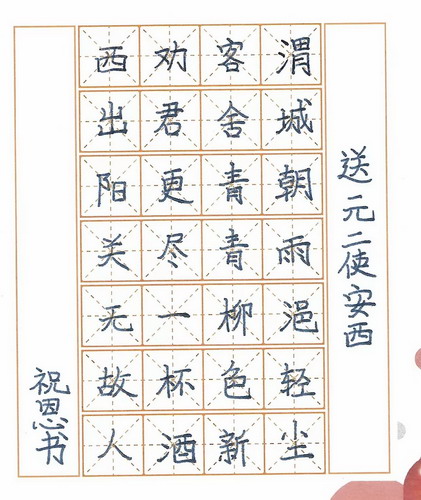 送元二使安西
渭城朝雨浥轻尘
客舍青青柳色新
劝君更尽一杯酒
西出阳关无故人
祝恩书